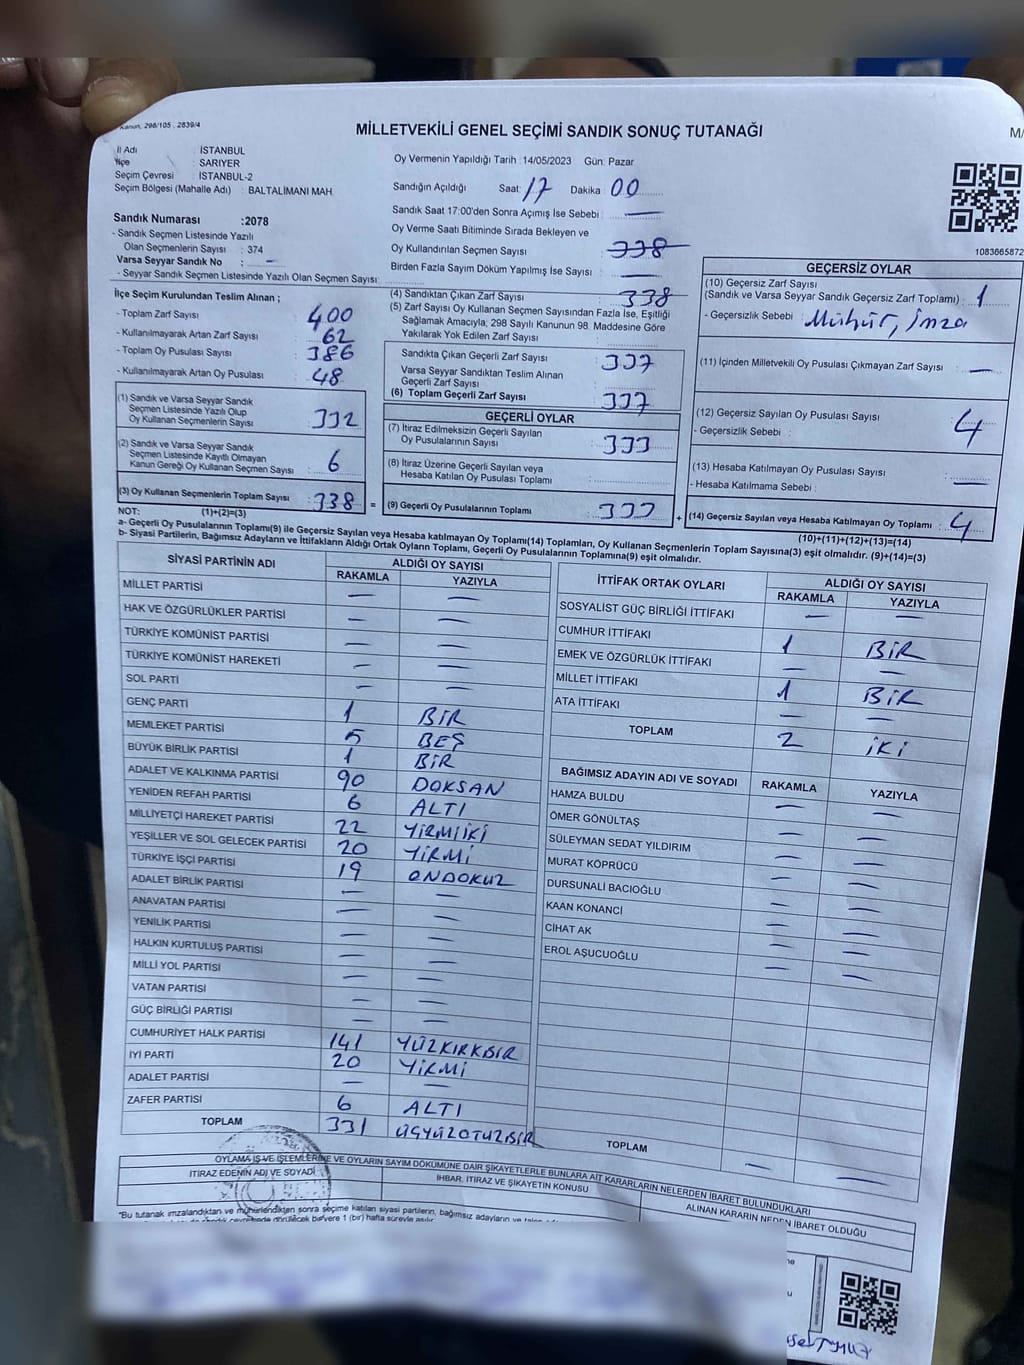 Kanun, 298/105, 2839/4
MİLLETVEKİLİ GENEL SEÇİMİ SANDIK SONUÇ TUTANAĞI
M/
İl Adı : İSTANBUL
İlçe : SARIYER
Seçim Çevresi : İSTANBUL-2
Seçim Bölgesi (Mahalle Adı) : BALTALİMANI MAH.
Sandık Numarası :2078
- Sandık Seçmen Listesinde Yazılı
Olan Seçmenlerin Sayısı : 374
Varsa Seyyar Sandık No : —
- Seyyar Sandık Seçmen Listesinde Yazılı Olan Seçmen Sayısı :
Oy Vermenin Yapıldığı Tarih : 14/05/2023 Gün: Pazar
Sandığın Açıldığı Saat: 17 Dakika : 00
Sandık Saat 17:00'den Sonra Açımış İse Sebebi : —
Oy Verme Saati Bitiminde Sırada Bekleyen ve
Oy Kullandırılan Seçmen Sayısı : 338
Birden Fazla Sayım Döküm Yapılmış İse Sayısı : —
1083665872
İlçe Seçim Kurulundan Teslim Alınan ;
- Toplam Zarf Sayısı : 400
- Kullanılmayarak Artan Zarf Sayısı : 62
- Toplam Oy Pusulası Sayısı : 386
- Kullanılmayarak Artan Oy Pusulası : 48
(1) Sandık ve Varsa Seyyar Sandık
Seçmen Listesinde Yazılı Olup
Oy Kullanan Seçmenlerin Sayısı : 332
(2) Sandık ve Varsa Seyyar Sandık
Seçmen Listesinde Kayıtlı Olmayan
Kanun Gereği Oy Kullanan Seçmen Sayısı : 6
(3) Oy Kullanan Seçmenlerin Toplam Sayısı : 338 =
(4) Sandıktan Çıkan Zarf Sayısı : 338
(5) Zarf Sayısı Oy Kullanan Seçmen Sayısından Fazla İse, Eşitliği
Sağlamak Amacıyla; 298 Sayılı Kanunun 98. Maddesine Göre
Yakılarak Yok Edilen Zarf Sayısı :
Sandıkta Çıkan Geçerli Zarf Sayısı : 337
Varsa Seyyar Sandıktan Teslim Alınan
Geçerli Zarf Sayısı :
(6) Toplam Geçerli Zarf Sayısı : 337
GEÇERLİ OYLAR
(7) İtiraz Edilmeksizin Geçerli Sayılan
Oy Pusulalarının Sayısı : 333
(8) İtiraz Üzerine Geçerli Sayılan veya
Hesaba Katılan Oy Pusulası Toplamı :
(9) Geçerli Oy Pusulalarının Toplamı : 333 +
GEÇERSİZ OYLAR
(10) Geçersiz Zarf Sayısı
(Sandık ve Varsa Seyyar Sandık Geçersiz Zarf Toplamı) : 1
- Geçersizlik Sebebi : Mühür, İmza
(11) İçinden Milletvekili Oy Pusulası Çıkmayan Zarf Sayısı : —
(12) Geçersiz Sayılan Oy Pusulası Sayısı : 4
- Geçersizlik Sebebi :
(13) Hesaba Katılmayan Oy Pusulası Sayısı : —
- Hesaba Katılmama Sebebi :
(14) Geçersiz Sayılan veya Hesaba Katılmayan Oy Toplamı : 4
(10)+(11)+(12)+(13)=(14)
NOT: (1)+(2)=(3)
a- Geçerli Oy Pusulalarının Toplamı(9) ile Geçersiz Sayılan veya Hesaba katılmayan Oy Toplamı(14) Toplamları, Oy Kullanan Seçmenlerin Toplam Sayısına(3) eşit olmalıdır. (9)+(14)=(3)
b- Siyasi Partilerin, Bağımsız Adayların ve İttifakların Aldığı Ortak Oyların Toplamı, Geçerli Oy Pusulalarının Toplamına(9) eşit olmalıdır.
SİYASİ PARTİNİN ADI ALDIĞI OY SAYISI
RAKAMLA YAZIYLA
MİLLET PARTİSİ — —
HAK VE ÖZGÜRLÜKLER PARTİSİ — —
TÜRKİYE KOMÜNİST PARTİSİ — —
TÜRKİYE KOMÜNİST HAREKETİ — —
SOL PARTİ — —
GENÇ PARTİ 1 BİR
MEMLEKET PARTİSİ 5 BEŞ
BÜYÜK BİRLİK PARTİSİ 1 BİR
ADALET VE KALKINMA PARTİSİ 90 DOKSAN
YENİDEN REFAH PARTİSİ 6 ALTI
MİLLİYETÇİ HAREKET PARTİSİ 22 YİRMİİKİ
YEŞİLLER VE SOL GELECEK PARTİSİ 20 YİRMİ
TÜRKİYE İŞÇİ PARTİSİ 19 ONDOKUZ
ADALET BİRLİK PARTİSİ — —
ANAVATAN PARTİSİ — —
YENİLİK PARTİSİ — —
HALKIN KURTULUŞ PARTİSİ — —
MİLLİ YOL PARTİSİ — —
VATAN PARTİSİ — —
GÜÇ BİRLİĞİ PARTİSİ — —
CUMHURİYET HALK PARTİSİ 141 YÜZKIRKBİR
İYİ PARTİ 20 YİRMİ
ADALET PARTİSİ — —
ZAFER PARTİSİ 6 ALTI
TOPLAM 331 ÜÇYÜZOTUZBİR
İTTİFAK ORTAK OYLARI ALDIĞI OY SAYISI
RAKAMLA YAZIYLA
SOSYALİST GÜÇ BİRLİĞİ İTTİFAKI — —
CUMHUR İTTİFAKI 1 BİR
EMEK VE ÖZGÜRLÜK İTTİFAKI — —
MİLLET İTTİFAKI 1 BİR
ATA İTTİFAKI — —
TOPLAM 2 İKİ
BAĞIMSIZ ADAYIN ADI VE SOYADI RAKAMLA YAZIYLA
HAMZA BULDU — —
ÖMER GÖNÜLTAŞ — —
SÜLEYMAN SEDAT YILDIRIM — —
MURAT KÖPRÜCÜ — —
DURSUNALİ BACIOĞLU — —
KAAN KONANCİ — —
CİHAT AK — —
EROL AŞUCUOĞLU — —
TOPLAM — —
OYLAMA İŞ VE İŞLEMLERİNE VE OYLARIN SAYIM DÖKÜMÜNE DAİR ŞİKAYETLERLE BUNLARA AİT KARARLARIN NELERDEN İBARET BULUNDUKLARI
İTİRAZ EDENİN ADI VE SOYADI İHBAR, İTİRAZ VE ŞİKAYETİN KONUSU ALINAN KARARIN NEDEN İBARET OLDUĞU
*Bu tutanak imzalandıktan ve mühürlendikten sonra seçime katılan siyasi partilerin, bağımsız adayların ve
bir yere 1 (bir) hafta süreyle asılır.